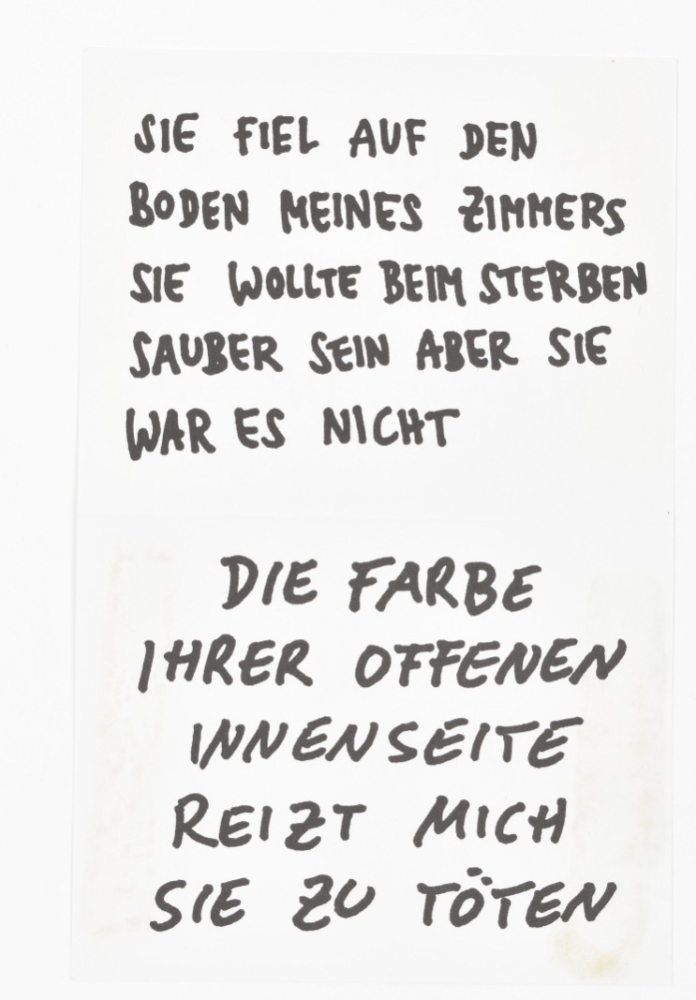 SIE FIEL AUF DEN
BODEN MEINES ZIMMERS
SIE WOLLTE BEIM STERBEN
SAUBER SEIN ABER SIE
WAR ES NICHT
DIE FARBE
IHRER OFFENEN
INNENSEITE
REIZT MICH
SIE ZU TÖTEN